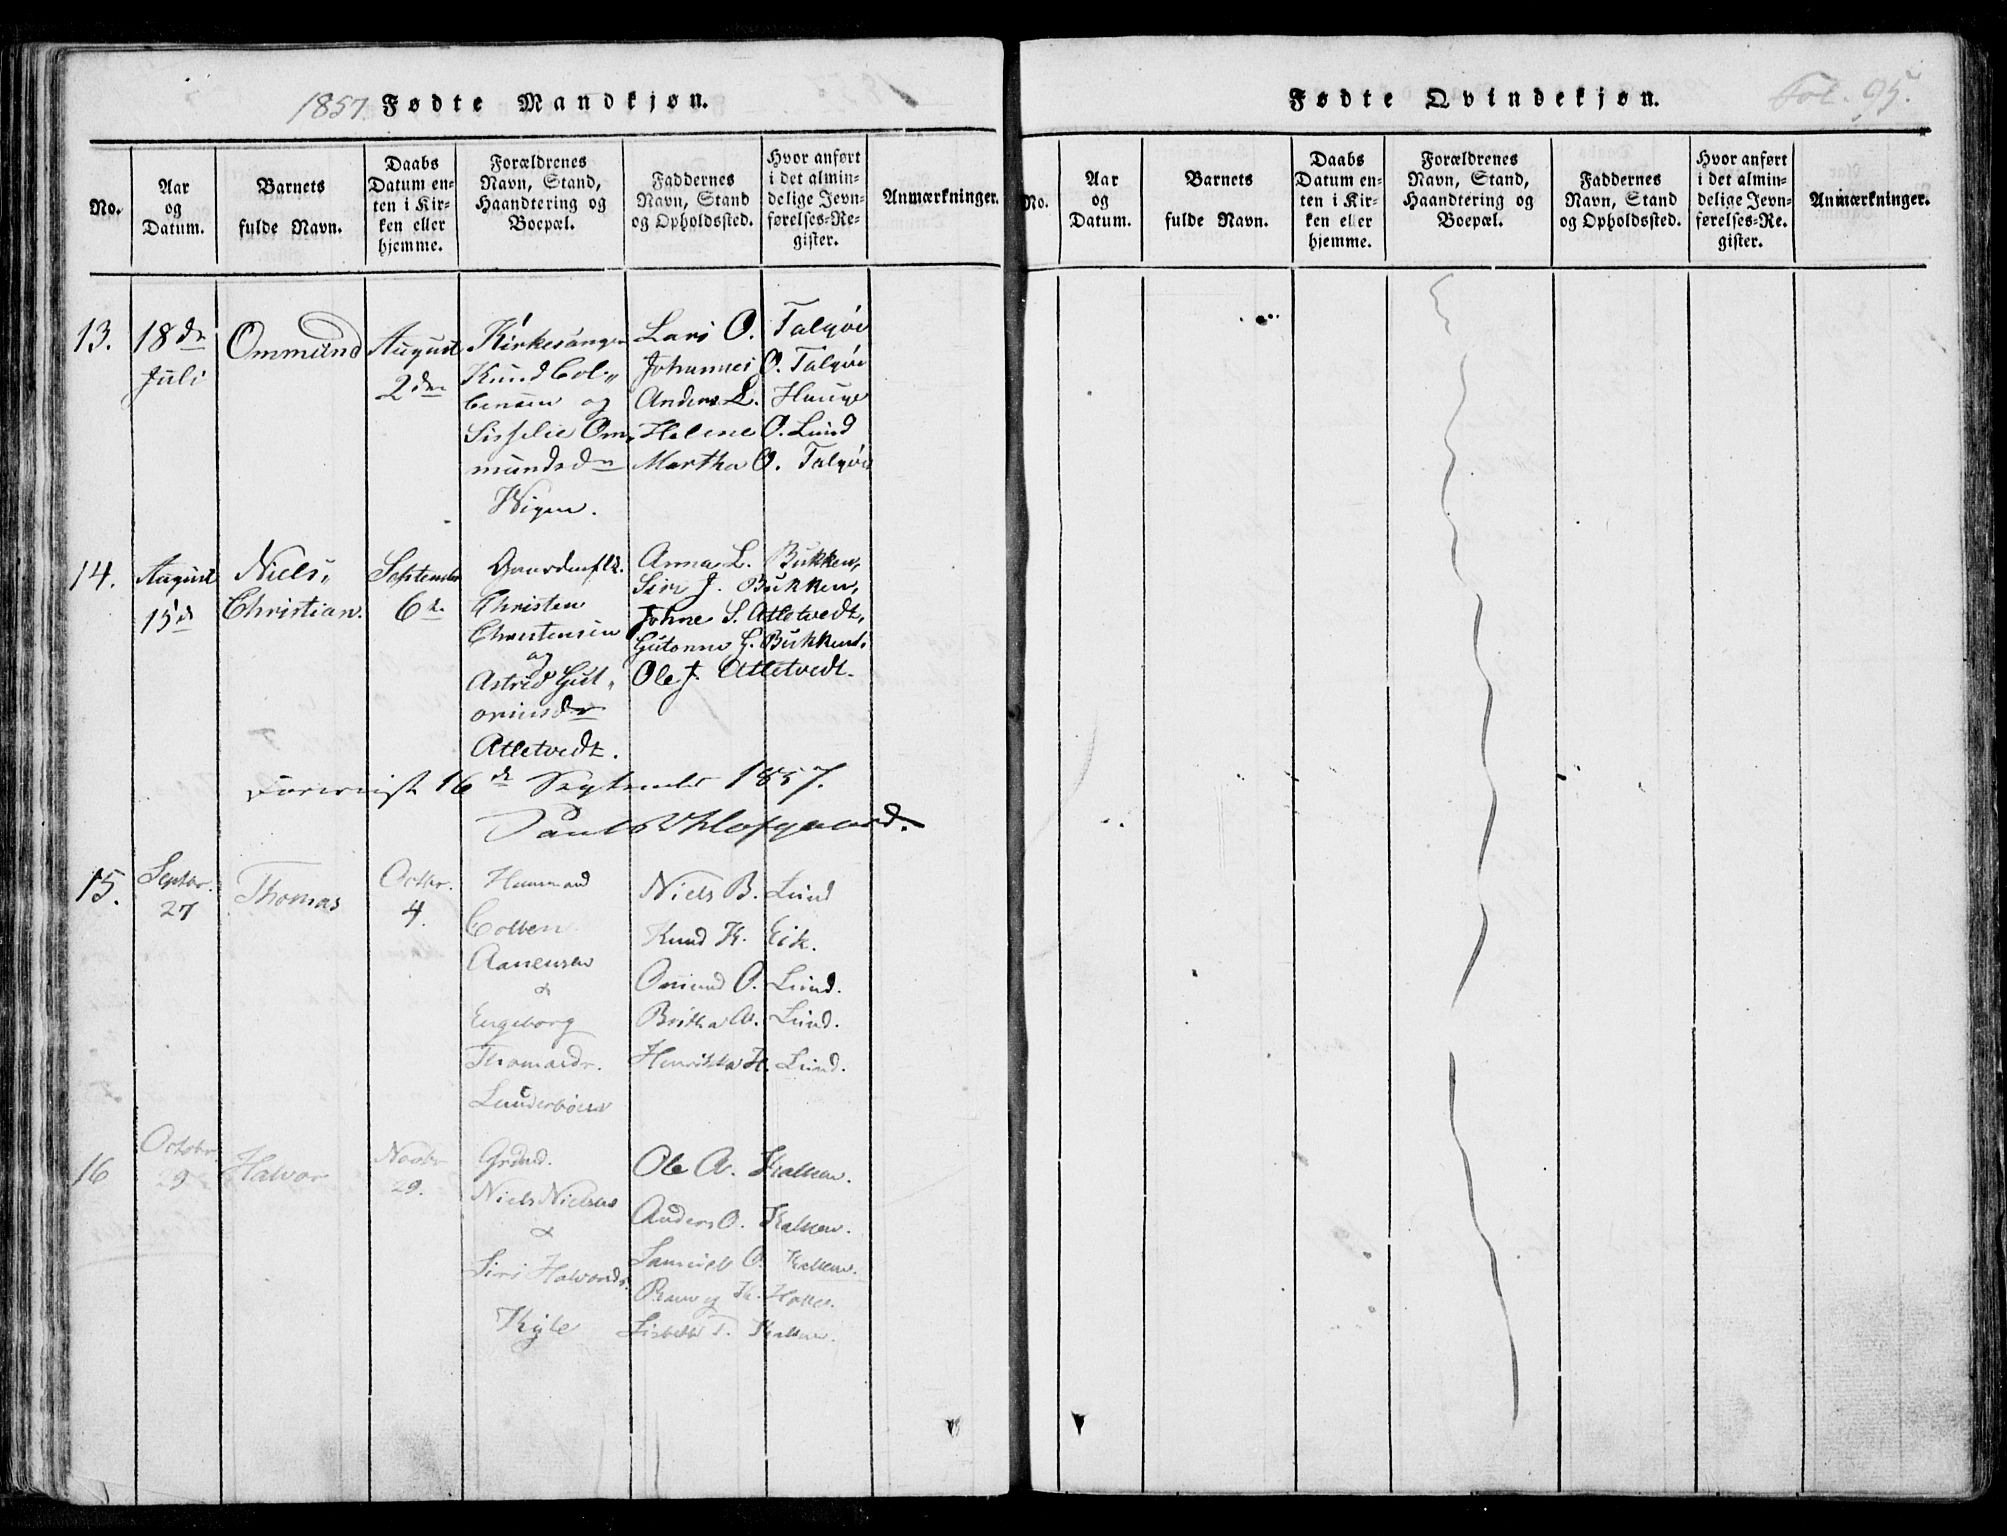 1857. Fødte Mandkjøn.
No.
Aar
og
Datum.
Barnets
fulde Navn.
Daabs
Datum en-
ten i Kir-
ken eller
hjemme.
Forældrenes
Navn, Stand,
Haandtering og
Boepæl.
Faddernes
Navn, Stand
og Opholdssted.
Hvor anført
i det almin-
delige Jevn-
førelses-Re-
gister.
Anmærkninger.
13.
18de
Juli
Ommund
August
2den
Kirkesanger
Knud Col-
bensen og
Sisselie Om-
mundsdr
Wigen.
Lars O. Talgøe
Johannes O. Talgøe
Anders L. Hauge
Helene O. Lund
Martha O. Talgøe
14.
August
15d
Niels
Christian.
September
6te
Gaardmfltz.
Christen
Christensen
og
Astrid Gut-
ormsdr
Atletvedt.
Anna L. Bukken,
Siri J. Bukken,
Johne S. Atletvedt,
Gutorm G. Bukken,
Ole J. Atletvedt.
Foreviist 16de September 1857.
15.
Septbr.
27
Thomas
Octbr.
4.
Huusmand
Colben
Aanensen
&
Engeborg
Thomasdr.
Niels B. Lund
Knud K. Eik.
Omund O. Lund.
Britha A. Lund.
Henrikka H. Lund.
16
Octobr
29
Halvor
Novbr
29.
Grdmd.
Niels Nielsen
&
Siri Halvorsdr.
Ole A.
Anders O.
Samuel O.
Lisbeth T.
Fødte Qvindekjøn. Fol. 95.
No.
Aar
og
Datum.
Barnets
fulde Navn.
Daabs
Datum en-
ten i Kir-
ken eller
hjemme.
Forældrenes
Navn, Stand,
Haandtering og
Boepæl.
Faddernes
Navn, Stand
og Opholdssted.
Hvor anført
i det almin-
delige Jevn-
førelses-Re-
gister.
Anmærkninger.